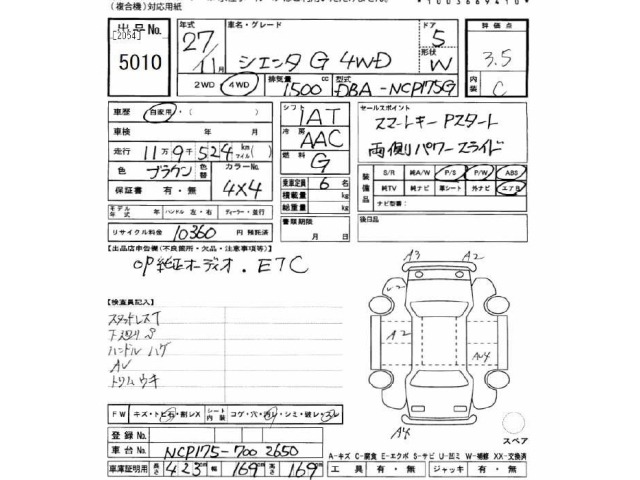 (複合機)対応用紙
*1003669410*
出品No. [2054] 5010
年式 27/11月
車名・グレード シエンタ G 4WD
ドア 5
形状 W
評価点 3.5
内装 C
2WD 4WD
排気量 1500 cc
型式 DBA-NCP175G
車歴 自家用・( )
車検 年 月
走行 11万9千524 km(マイル)
色 ブラウン
色替
カラーNo. 4X4
保証書 有・無
モデル年式 年 ハンドル 左・右 ディーラー・並行
リサイクル料金 10360 円 預託済
シフト IAT
冷房 AAC
燃料 G
乗車定員 6 名
積載量 kg
総重量 kg
書類期限
月 日
セールスポイント
スマートキー Pスタート
両側パワースライド
装備品 S/R 純A/W P/S P/W ABS
純TV 純ナビ 革シート 外ナビ エアB
ナビ型番:
後日品
【出品店申告欄(不良箇所・欠品・注意事項等)】
OP純正オーディオ. ETC
【検査員記入】
スタッドレスT
下廻りP
ハンドルハゲ
AV
トリムウキ
A3 A2
A2
A4
FW キズ・トビ石・割レX シート内装 コゲ・穴・汚レ・シミ・破レ・スレ
登録No.
車台No. NCP175-7002650
車庫証明用 長さ 423 幅 169 高さ 169
スペア
A-キズ C-腐食 E-エクボ S-サビ U-凹ミ W-補修 XX-交換済
工具 有・無 ジャッキ 有・無